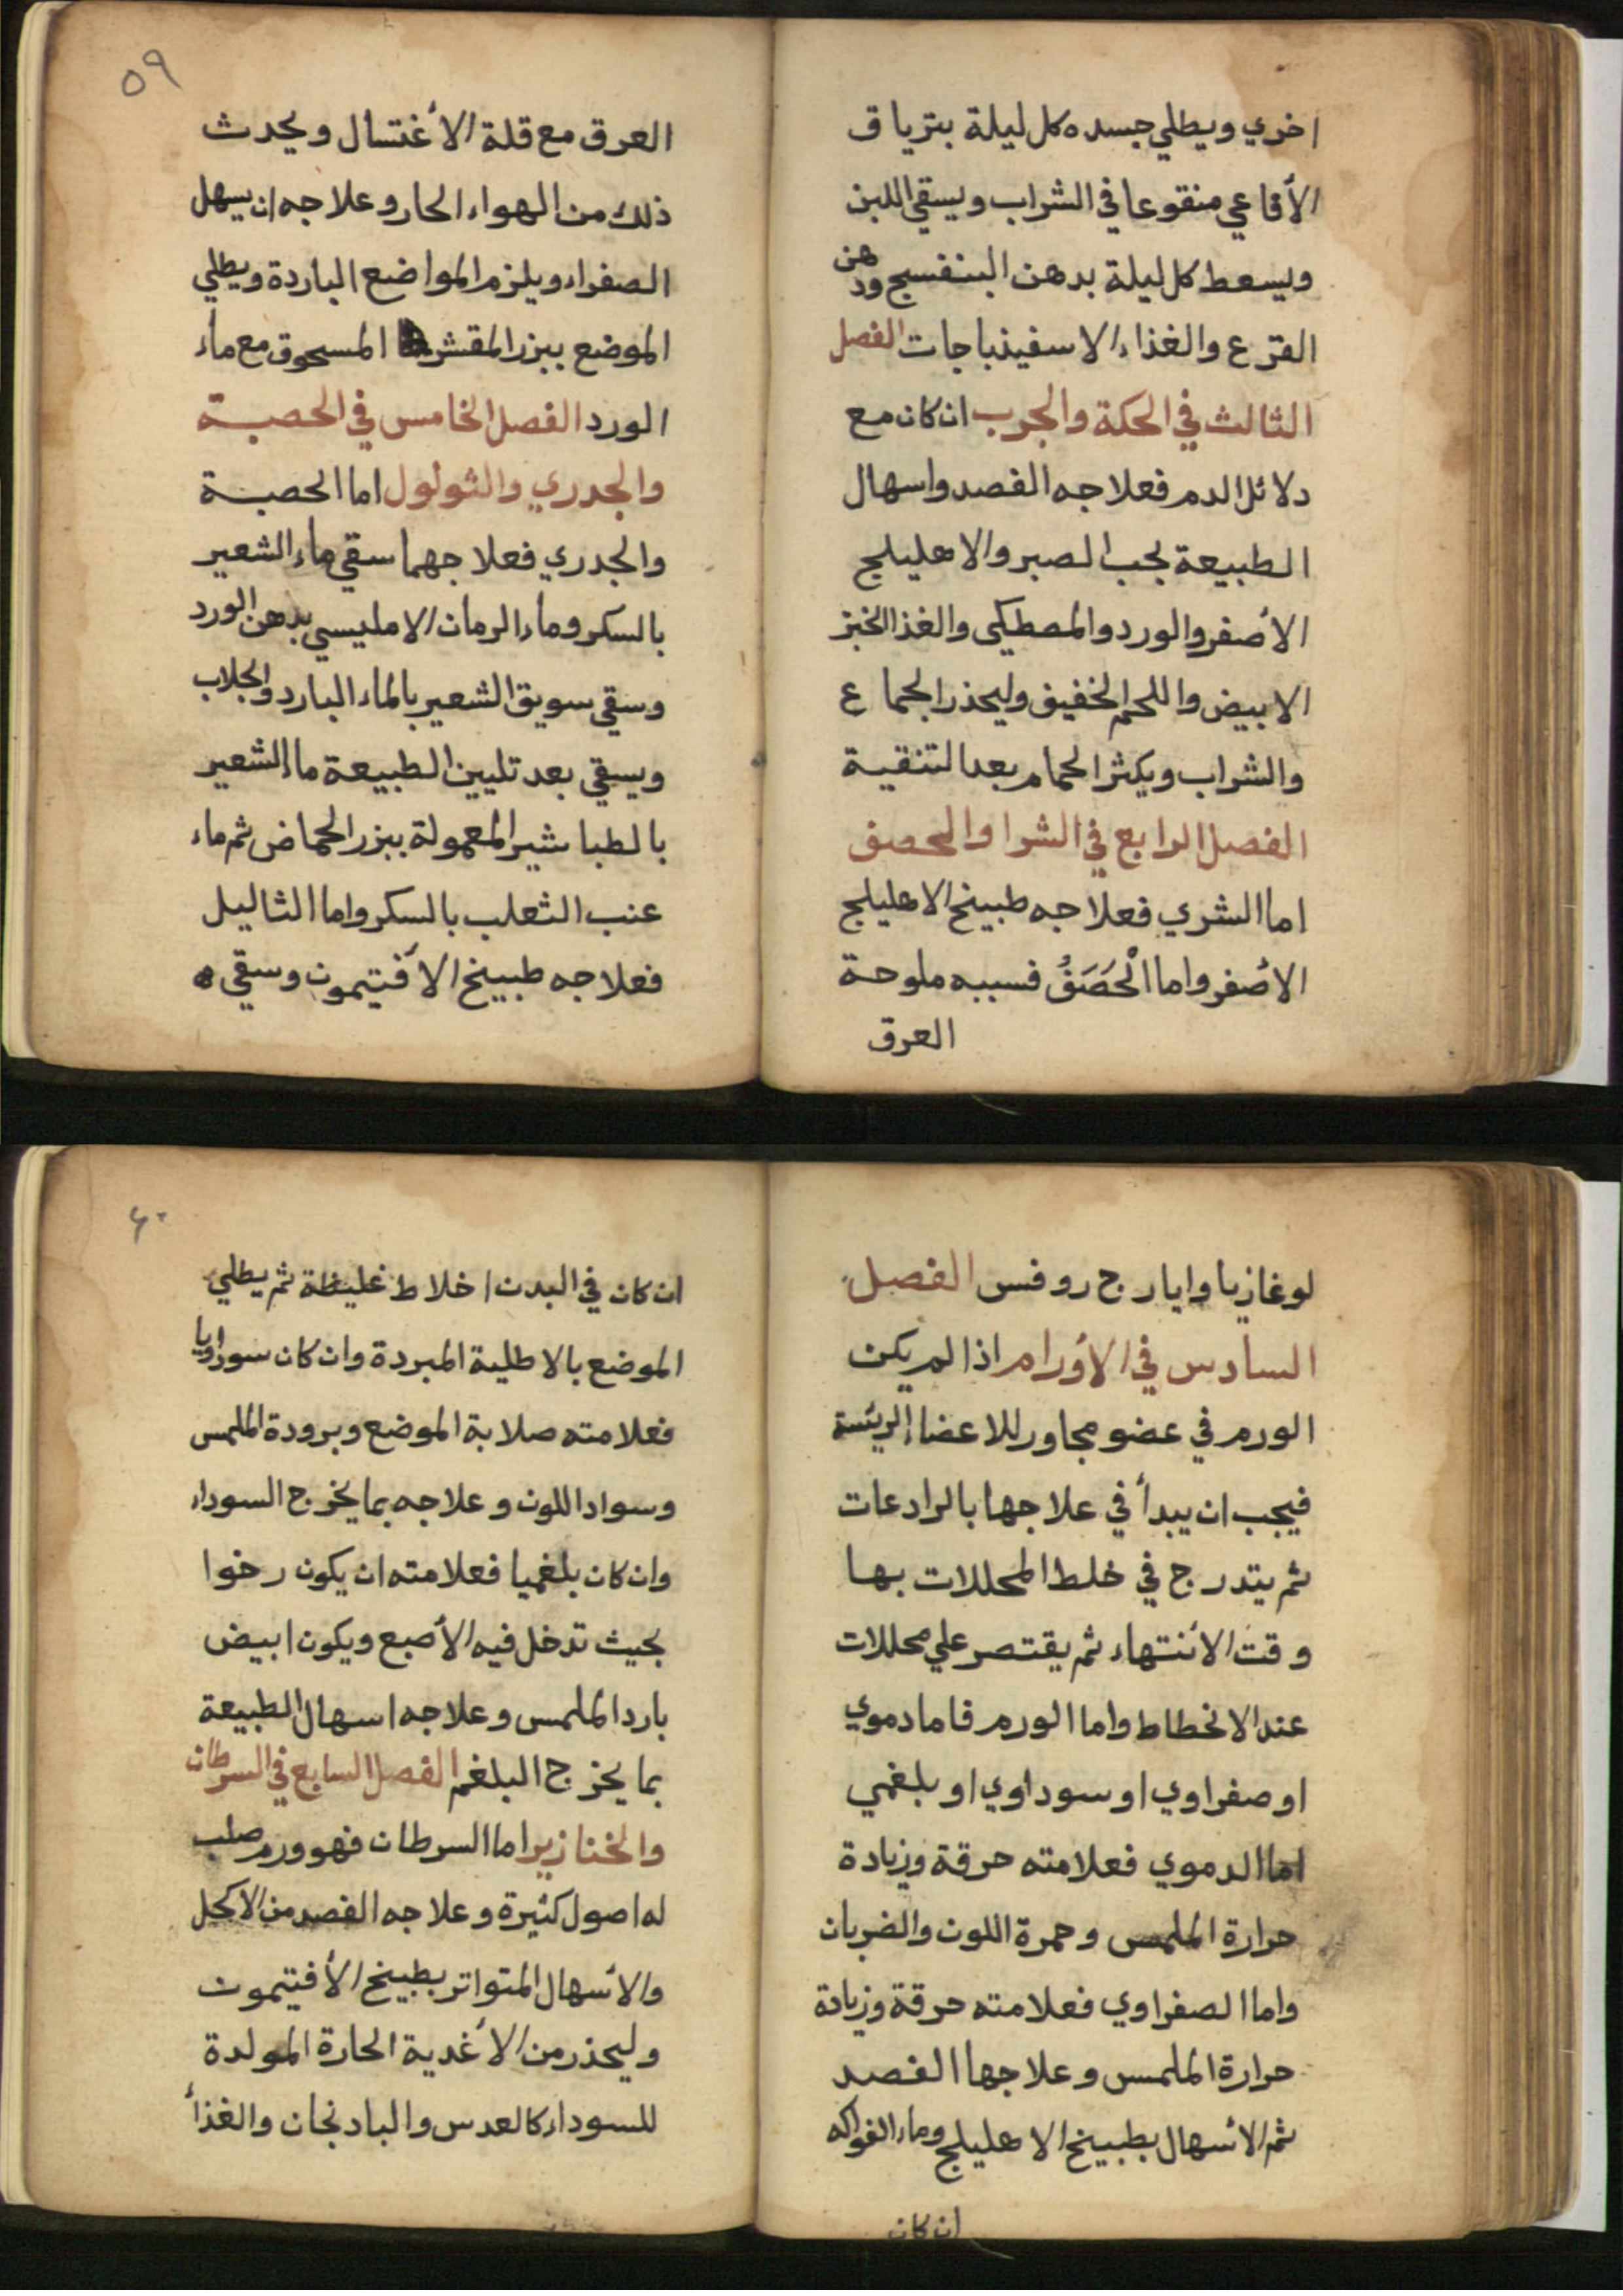 اخري ويطلي جسده كل ليلة بترياق
الأفاعي منقوعا في الشراب ويسقي اللبن
ويسعط كل ليلة بدهن البنفسج ودهن
القرع والغذاء الاسفيذباجات الفصل
الثالث في الحكة والجرب ان كان مع
دلائل الدم فعلاجه الفصد واسهال
الطبيعة بحب الصبر والاهليلج
الأصفر والورد والمصطكى والغذا الخبز
الابيض واللحم الخفيف وليحذر الجماع
والشراب ويكثر الحمام بعد التنقية
الفصل الرابع في الشرا والحصف
اما الشري فعلاجه طبيخ الاهليلج
الأصفر واما الْحَصَفُ فسببه ملوحة
العرق
٥٩
العرق مع قلة الأغتسال ويحدث
ذلك من الهواء الحار وعلاجه ان يسهل
الصفراء ويلزم المواضع الباردة ويطلي
الموضع ببزر المقشر المسحوق مع ماء
الورد الفصل الخامس في الحصبة
والجدري والثولول اما الحصبة
والجدري فعلاجهما سقي ماء الشعير
بالسكر وماء الرمان الامليسي بدهن الورد
وسقي سويق الشعير بالماء البارد والجلاب
ويسقي بعد تليين الطبيعة ماء الشعير
بالطباشير المعمولة ببزر الحماض ثم ماء
عنب الثعلب بالسكر واما الثاليل
فعلاجه طبيخ الأفتيمون وسقي ه
لوغازيا وايارج روفس الفصل
السادس في الأورام اذا لم يكن
الورم في عضو مجاور للاعضا الريئسة
فيجب ان يبدأ في علاجها بالرادعات
ثم يتدرج في خلط المحللات بها
وقت الأنتهاء ثم يقتصر علي محللات
عند الانحطاط واما الورم فاما دموي
او صفراوي او سوداوي او بلغمي
اما الدموي فعلامته حرقة وزيادة
حرارة الملمس وحمرة اللون والضربان
واما الصفراوي فعلامته حرقة وزيادة
حرارة الملمس وعلاجها الفصد
ثم الأسهال بطبيخ الاهليلج وماء الفواكه
ان كان
٦٠
ان كان في البدن اخلاط غليظة ثم يطلي
الموضع بالاطلية المبردة وان كان سوداويا
فعلامته صلابة الموضع وبرودة الملمس
وسواد اللون وعلاجه بما يخرج السوداء
وان كان بلغميا فعلامته ان يكون رخوا
بحيث تدخل فيه الأصبع ويكون ابيض
بارد الملمس وعلاجه اسهال الطبيعة
بما يخرج البلغم الفصل السابع في السرطان
والخنازير اما السرطان فهو ورم صلب
له اصول كثيرة وعلاجه الفصد من الاكحل
والأسهال المتواتر بطبيخ الأفتيمون
وليحذر من الأغدية الحارة المولدة
للسوداء كالعدس والبادنجان والغذأ